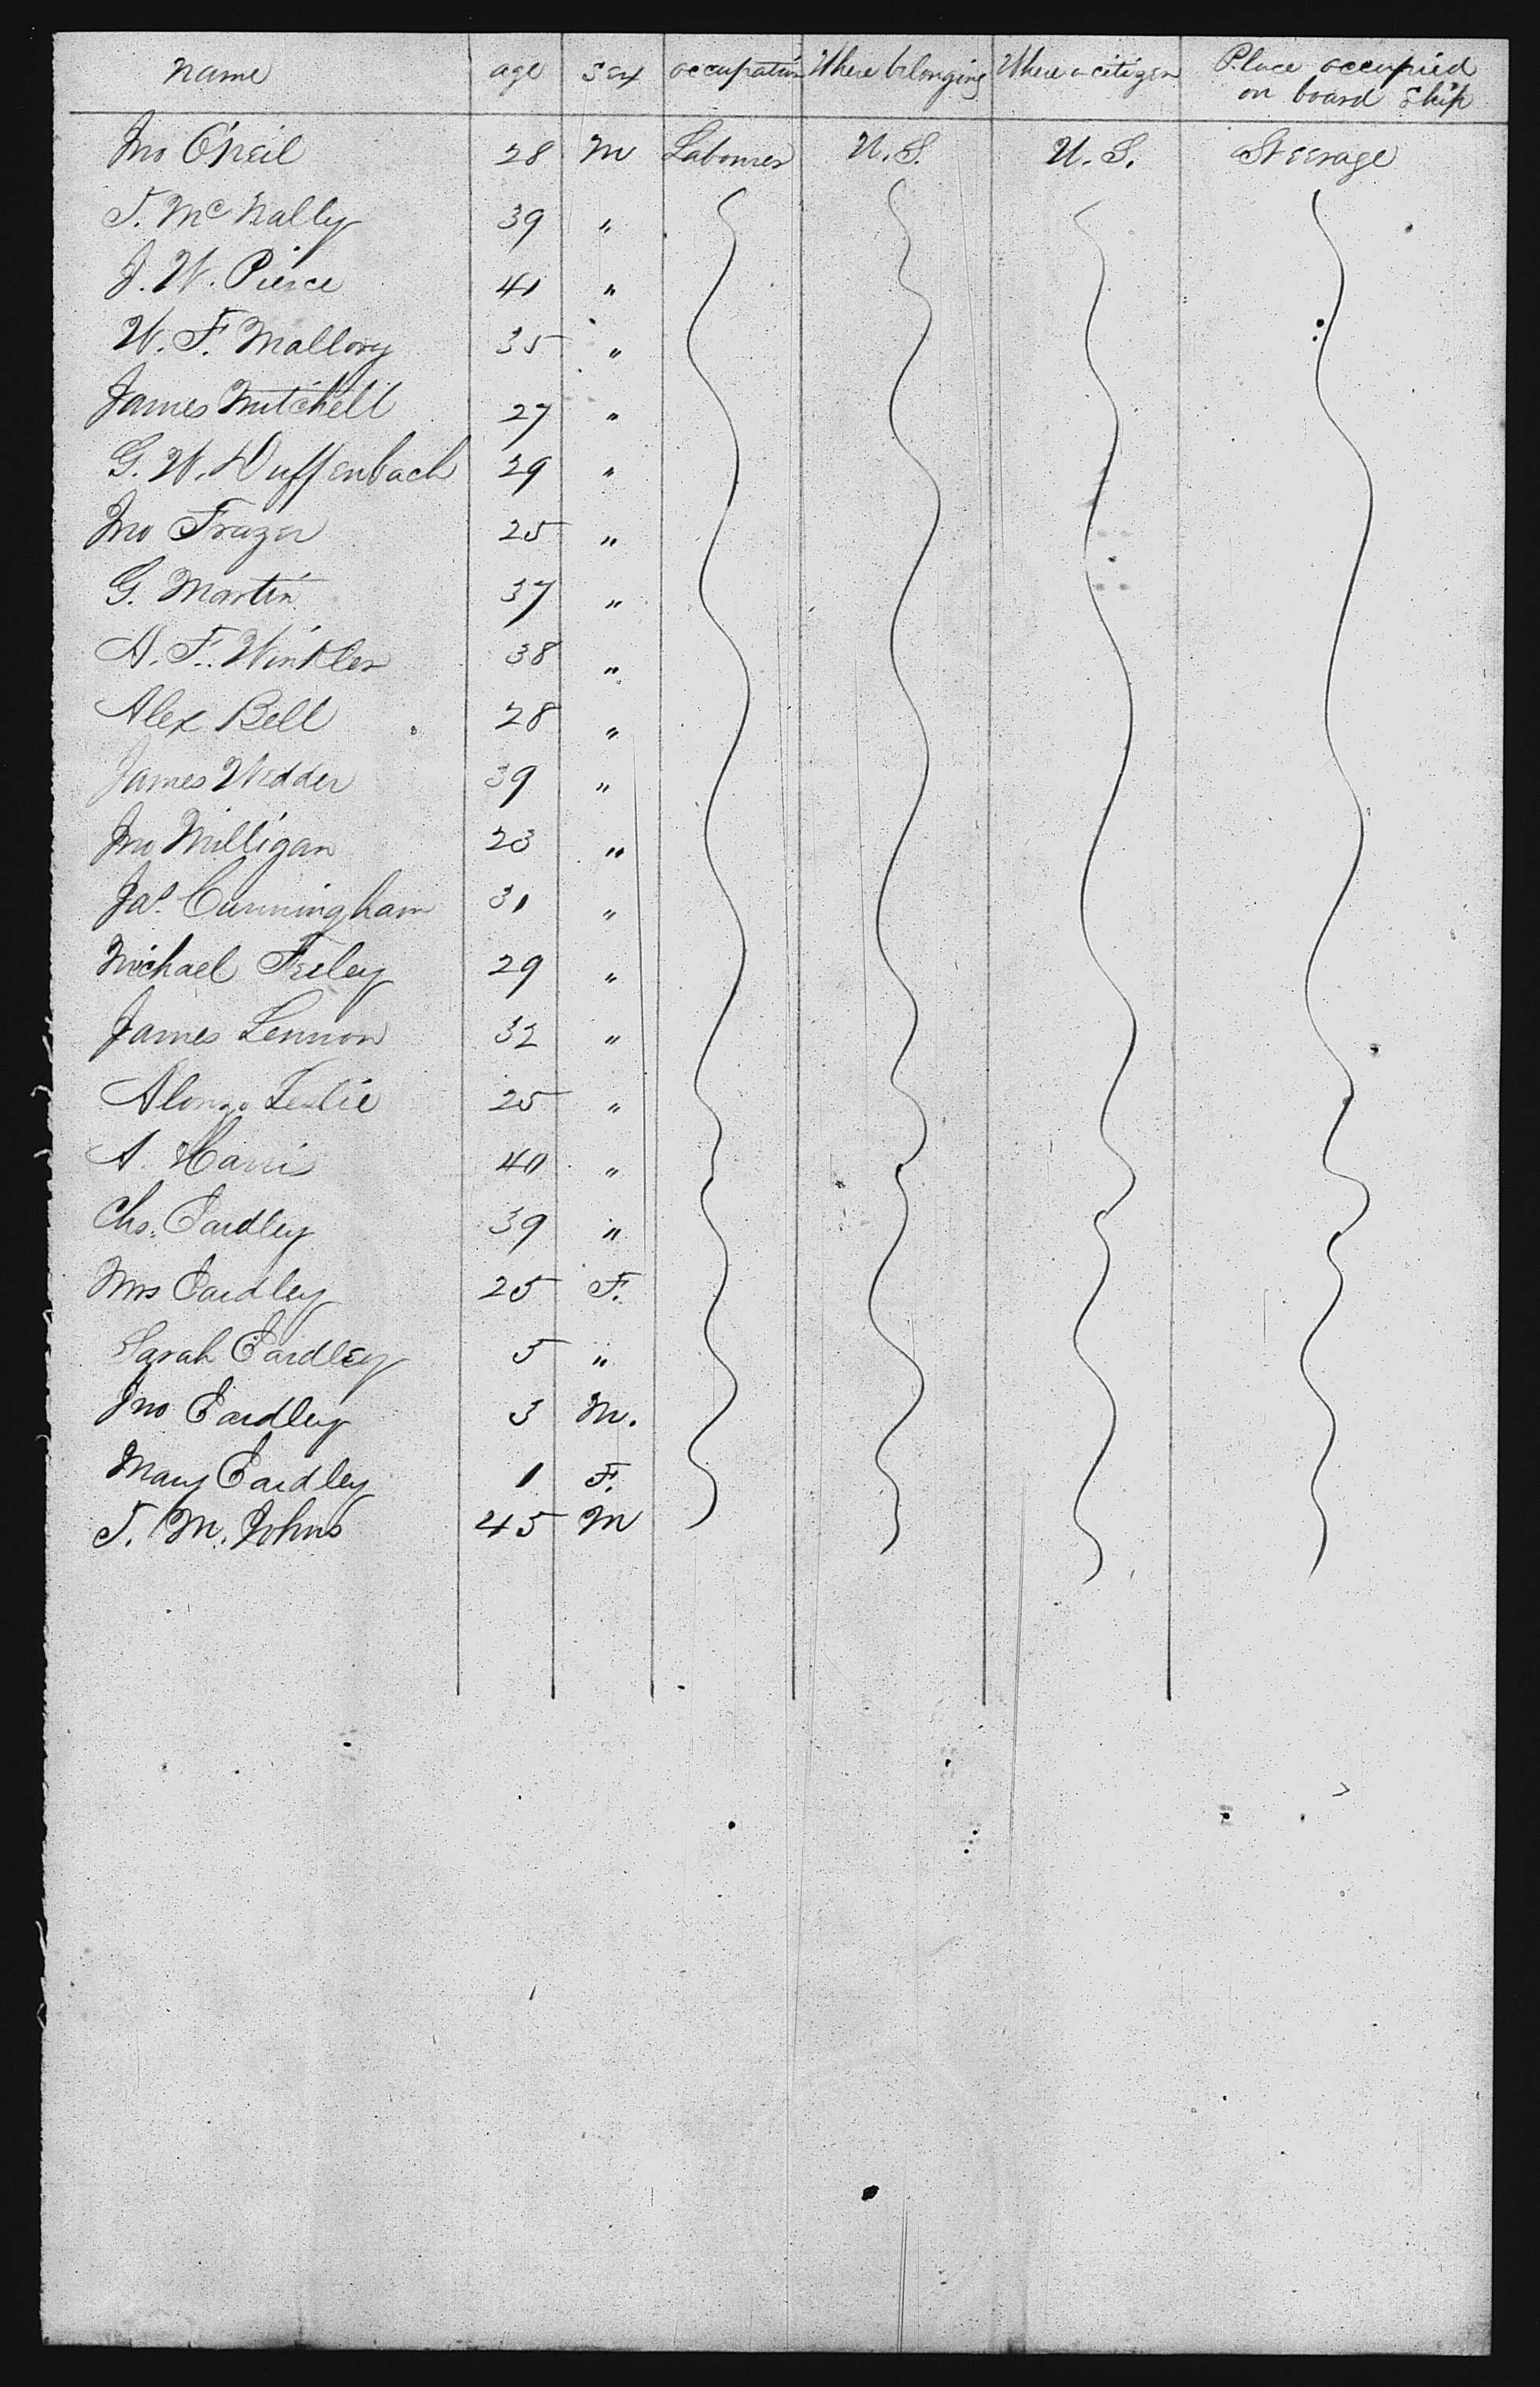 Name age Sex occupation Where belonging Where a citizen Place occupied
on board Ship
Jno O'Neil 28 M Labourer U.S. U.S. Steerage
T. McNally 39 "
J. W. Pierce 41 "
W. F. Mallory 35 "
James Mitchell 27 "
G. W. Duffenbach 29 "
Jno Frazer 25 "
G. Martin 37 "
A. F. Winkler 38 "
Alex Bell 28 "
James Vedder 39 "
Jno Milligan 23 "
Jas. Cunningham 31 "
Michael Feeley 29 "
James Lennon 32 "
Alonzo Leslie 25 "
A. Harris 40 "
Chs. Eardley 39 "
Mrs Eardley 25 F.
Sarah Eardley 5 "
Jno Eardley 3 M.
Mary Eardley 1 F.
T. M. Johns 45 M